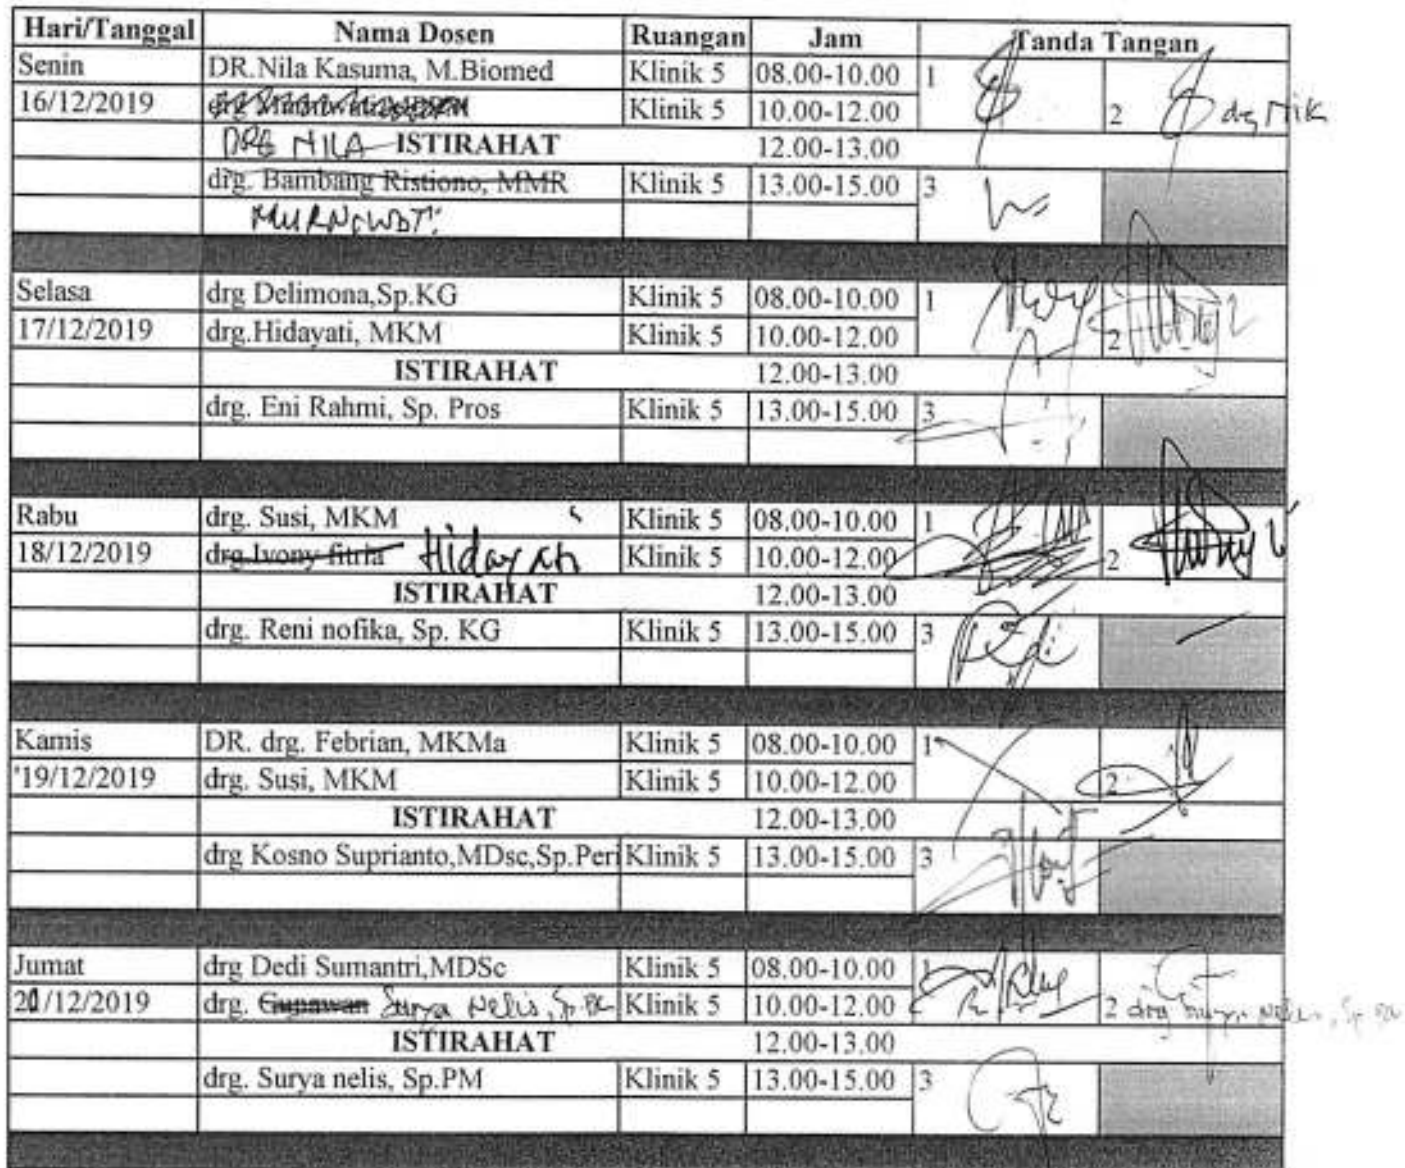 Hari/Tanggal Nama Dosen Ruangan Jam Tanda Tangan
Senin DR.Nila Kasuma, M.Biomed Klinik 5 08.00-10.00 1
16/12/2019 Klinik 5 10.00-12.00 2 drg Nila
DRG NILA ISTIRAHAT 12.00-13.00
drg. Bambang Ristiono, MMR Klinik 5 13.00-15.00 3
MURNIWATI
Selasa drg Delimona,Sp.KG Klinik 5 08.00-10.00 1
17/12/2019 drg.Hidayati, MKM Klinik 5 10.00-12.00 2
ISTIRAHAT 12.00-13.00
drg. Eni Rahmi, Sp. Pros Klinik 5 13.00-15.00 3
Rabu drg. Susi, MKM Klinik 5 08.00-10.00 1
18/12/2019 drg.Ivony fitria Hidayati Klinik 5 10.00-12.00 2
ISTIRAHAT 12.00-13.00
drg. Reni nofika, Sp. KG Klinik 5 13.00-15.00 3
Kamis DR. drg. Febrian, MKMa Klinik 5 08.00-10.00 1
'19/12/2019 drg. Susi, MKM Klinik 5 10.00-12.00 2
ISTIRAHAT 12.00-13.00
drg Kosno Suprianto,MDsc,Sp.Peri Klinik 5 13.00-15.00 3
Jumat drg Dedi Sumantri,MDSc Klinik 5 08.00-10.00 1
20/12/2019 drg. Gunawan Surya Nelis, Sp. Klinik 5 10.00-12.00 2 drg Surya Nelis, Sp
ISTIRAHAT 12.00-13.00
drg. Surya nelis, Sp.PM Klinik 5 13.00-15.00 3